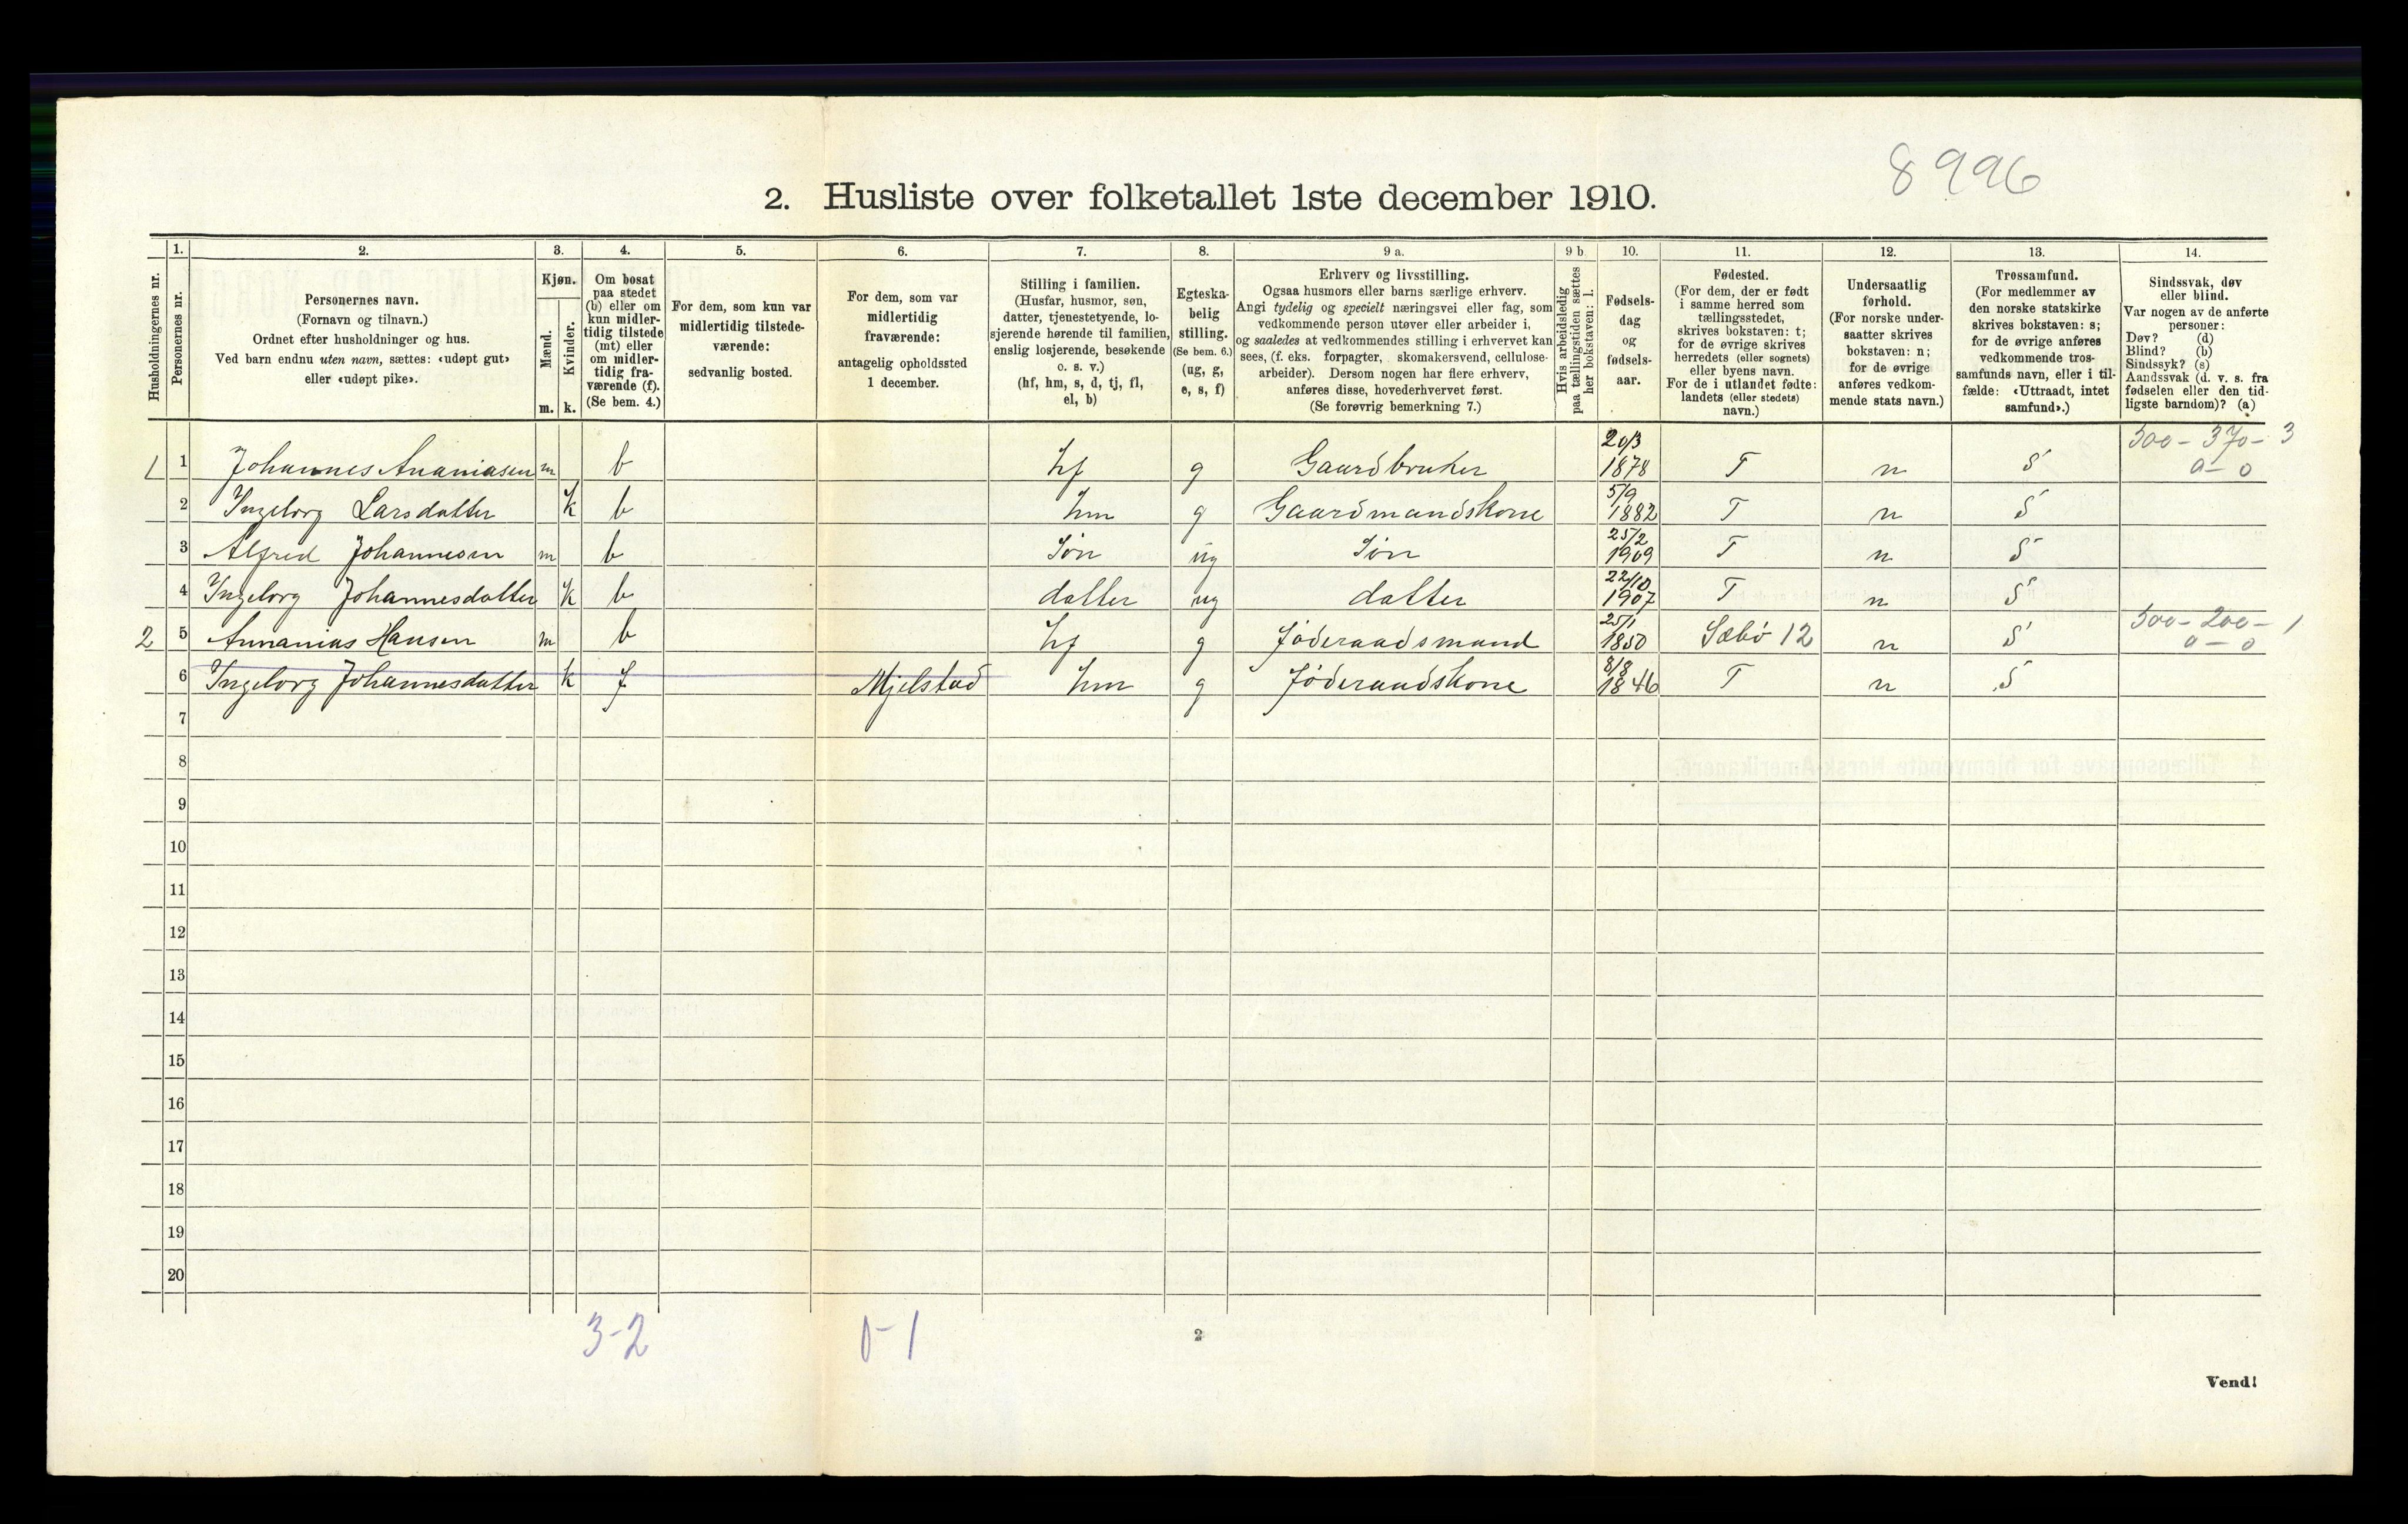 8996
2. Husliste over folketallet 1ste december 1910.
1. 2. 3. 4. 5. 6. 7. 8. 9 a. 9 b 10. 11. 12. 13. 14.
Husholdningernes nr.
Personernes nr.
Personernes navn.
(Fornavn og tilnavn.)
Ordnet efter husholdninger og hus.
Ved barn endnu uten navn, sættes: «udøpt gut»
eller «udøpt pike».
Kjøn.
Mænd.
Kvinder.
m. k.
Om bosat
paa stedet
(b) eller om
kun midler-
tidig tilstede
(mt) eller
om midler-
tidig fra-
værende (f).
(Se bem. 4.)
For dem, som kun var
midlertidig tilstede-
værende:
sedvanlig bosted.
For dem, som var
midlertidig
fraværende:
antagelig opholdssted
1 december.
Stilling i familien.
(Husfar, husmor, søn,
datter, tjenestetyende, lo-
sjerende hørende til familien,
enslig losjerende, besøkende
o. s. v.)
(hf, hm, s, d, tj, fl,
el, b)
Egteska-
belig
stilling.
(Se bem. 6.)
(ug, g,
e, s, f)
Erhverv og livsstilling.
Ogsaa husmors eller barns særlige erhverv.
Angi tydelig og specielt næringsvei eller fag, som
vedkommende person utøver eller arbeider i,
og saaledes at vedkommendes stilling i erhvervet kan
sees, (f. eks. forpagter, skomakersvend, cellulose-
arbeider). Dersom nogen har flere erhverv,
anføres disse, hovederhvervet først.
(Se forøvrig bemerkning 7.)
Hvis arbeidsledig
paa tællingstiden sættes
her bokstaven: l.
Fødsels-
dag
og
fødsels-
aar.
Fødested.
(For dem, der er født
i samme herred som
tællingsstedet,
skrives bokstaven: t;
for de øvrige skrives
herredets (eller sognets)
eller byens navn.
For de i utlandet fødte:
landets (eller stedets)
navn.)
Undersaatlig
forhold.
(For norske under-
saatter skrives
bokstaven: n;
for de øvrige
anføres vedkom-
mende stats navn.)
Trossamfund.
(For medlemmer av
den norske statskirke
skrives bokstaven: s;
for de øvrige anføres
vedkommende tros-
samfunds navn, eller i til-
fælde: «Uttraadt, intet
samfund».)
Sindssvak, døv
eller blind.
Var nogen av de anførte
personer:
Døv? (d)
Blind? (b)
Sindssyk? (s)
Aandssvak (d. v. s. fra
fødselen eller den tid-
ligste barndom)? (a)
1 1 Johannes Ananiasen m b hf g Gaardbruker 20/3 1878 T n S 300-370-3
0-0
2 Ingeborg Larsdatter k b hm g Gaardmandskone 5/9 1882 T n S
3 Alfred Johannesen m b Søn ug Søn 25/2 1909 T n S
4 Ingeborg Johannesdatter k b datter ug datter 22/10 1907 T n S
2 5 Annanias Hansen m b hf g Føderaadsmand 25/1 1850 Sæbø 12 n S 300-200-1
0-0
6 Ingeborg Johannesdatter k f Mjelstad hm g Føderaadskone 8/8 1846 T n S
7
8
9
10
11
12
13
14
15
16
17
18
19
20
3-2 0-1
2
Vend!